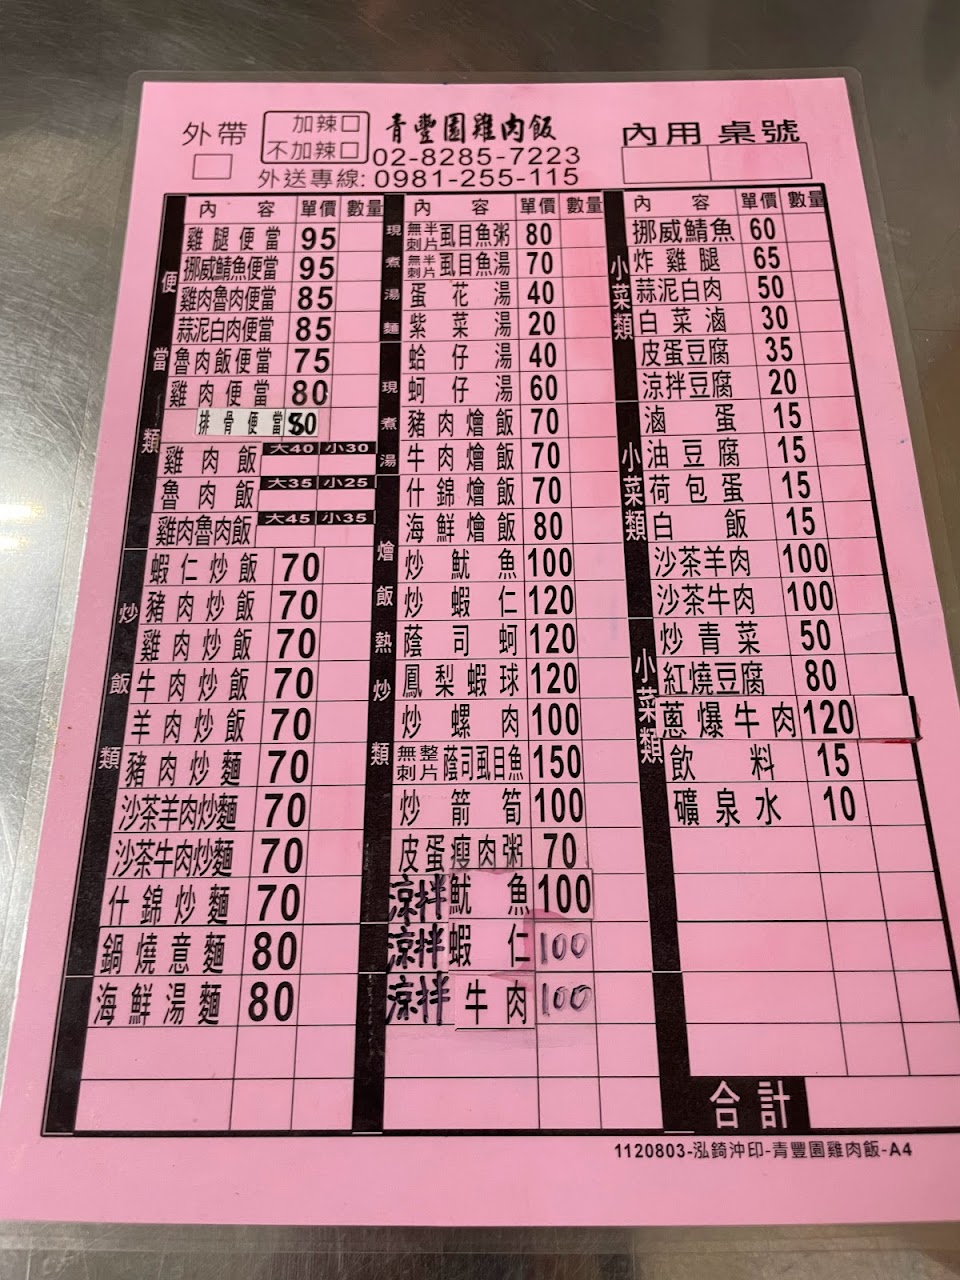 外帶
加辣□
不加辣□
青豐園雞肉飯
02-8285-7223
外送專線: 0981-255-115
內用 桌號
內容 單價 數量
便當類
雞腿便當 95
挪威鯖魚便當 95
雞肉魯肉便當 85
蒜泥白肉便當 85
魯肉飯便當 75
雞肉便當 80
排骨便當 80
雞肉飯 大40 小30
魯肉飯 大35 小25
雞肉魯肉飯 大45 小35
炒飯類
蝦仁炒飯 70
豬肉炒飯 70
雞肉炒飯 70
牛肉炒飯 70
羊肉炒飯 70
豬肉炒麵 70
沙茶羊肉炒麵 70
沙茶牛肉炒麵 70
什錦炒麵 70
鍋燒意麵 80
海鮮湯麵 80
內容 單價 數量
現煮湯麵 現煮湯
無刺半片虱目魚粥 80
無刺半片虱目魚湯 70
蛋花湯 40
紫菜湯 20
蛤仔湯 40
蚵仔湯 60
豬肉燴飯 70
牛肉燴飯 70
什錦燴飯 70
海鮮燴飯 80
燴飯熱炒類
炒魷魚 100
炒蝦仁 120
蔭司蚵 120
鳳梨蝦球 120
炒螺肉 100
無刺整片蔭司虱目魚 150
炒箭筍 100
皮蛋瘦肉粥 70
涼拌魷魚 100
涼拌蝦仁 100
涼拌牛肉 100
內容 單價 數量
小菜類
挪威鯖魚 60
炸雞腿 65
蒜泥白肉 50
白菜滷 30
皮蛋豆腐 35
涼拌豆腐 20
小菜類
滷蛋 15
油豆腐 15
荷包蛋 15
白飯 15
沙茶羊肉 100
沙茶牛肉 100
小菜類
炒青菜 50
紅燒豆腐 80
蔥爆牛肉 120
飲料 15
礦泉水 10
合計
1120803-泓錡沖印-青豐園雞肉飯-A4